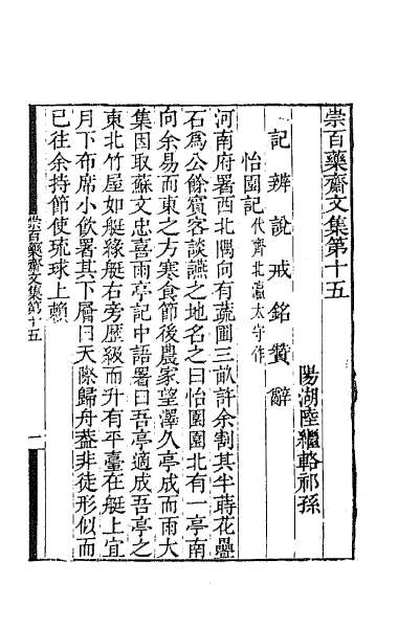 崇百藥齋文集第十五
陽湖陸繼輅祁孫
記辨說戒銘贊辭
怡園記代齊北瀛太守作
河南府署西北隅向有蔬圃三畝許余割其半蒔花疊
石爲公餘賓客談讌之地名之曰怡園園北有一亭南
向余易而東之方寒食節後農家望澤久亭成而雨大
集因取蘇文忠喜雨亭記中語署曰吾亭適成吾亭之
東北竹屋如艇緣艇右旁歷級而升有平臺在艇上宜
月下布席小飲署其下層曰天際歸舟葢非徒形似而
已往余持節使琉球上賴
崇百藥齋文集第十五
一